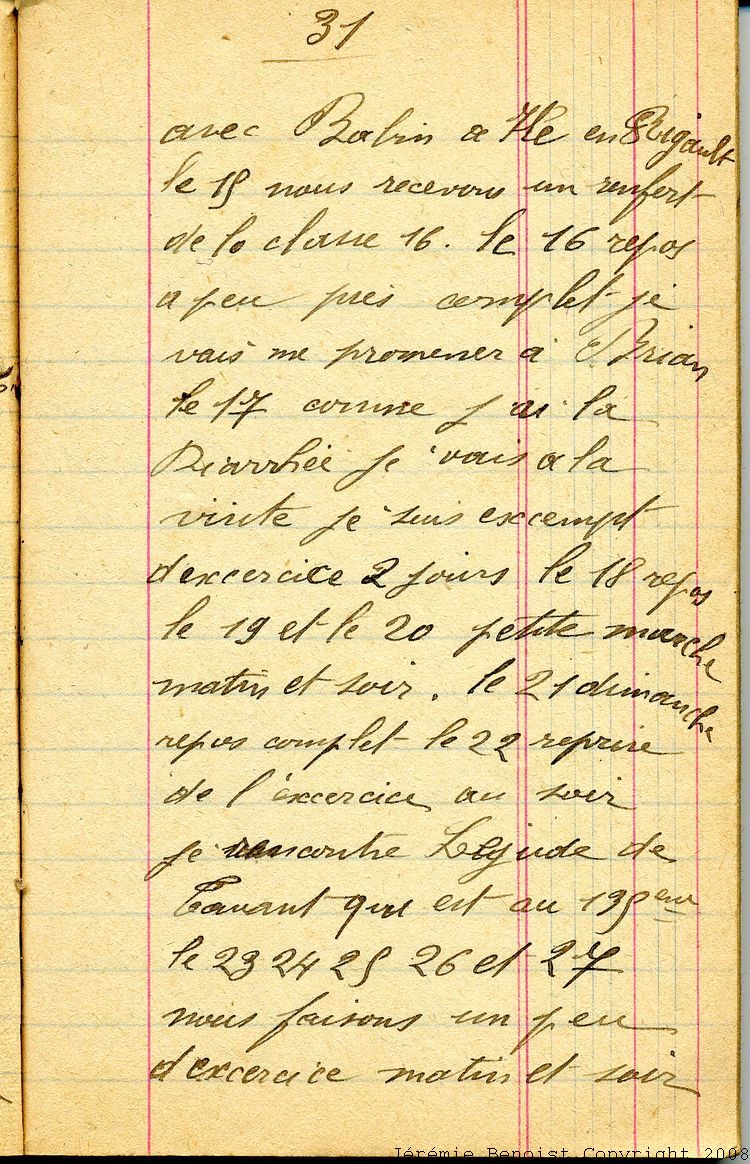 31
avec Babin a Hé en Rigault
le 15 nous recevons un renfort
de la classe 16. le 16 repos
a peu pres complet je
vais me promener a Brian
le 17 comme j'ai la
Diarrhée je vais a la
visite je suis excempt
d'excercice 2 jours le 18 repos
le 19 et le 20 petite marche
matin et soir. le 21 dimanche
repos complet le 22 reprise
de l'éxcercice au soir
je rencontre Lejude de
Tavant qui est au 135eme
le 23 24 25 26 et 27
nous faisons un peu
d'excercice matin et soir
Jérémie Benoist Copyright 2008